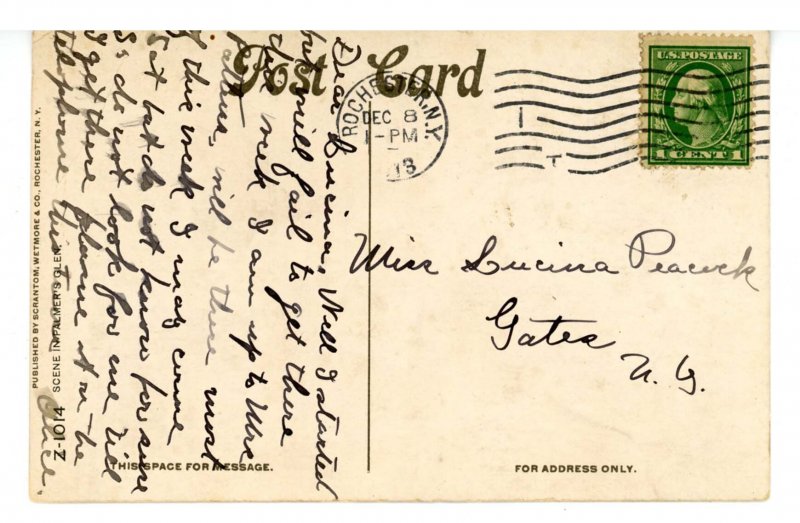 Post Card
ROCHESTER, N.Y.
DEC 8
1-PM
13
U.S. POSTAGE
1 CENT 1
Dear Lucina, Well I started
but will fail to get there
this week I am up to Mrs
will be there most
of this week I may come
Sat but do not know for sure
So do not look for me till
I get there phone
telephone Alice.
Miss Lucina Peacock
Gates
N.Y.
PUBLISHED BY SCRANTOM, WETMORE & CO., ROCHESTER, N.Y.
Z-1014 SCENE IN PALMER'S GLEN.
THIS SPACE FOR MESSAGE.
FOR ADDRESS ONLY.